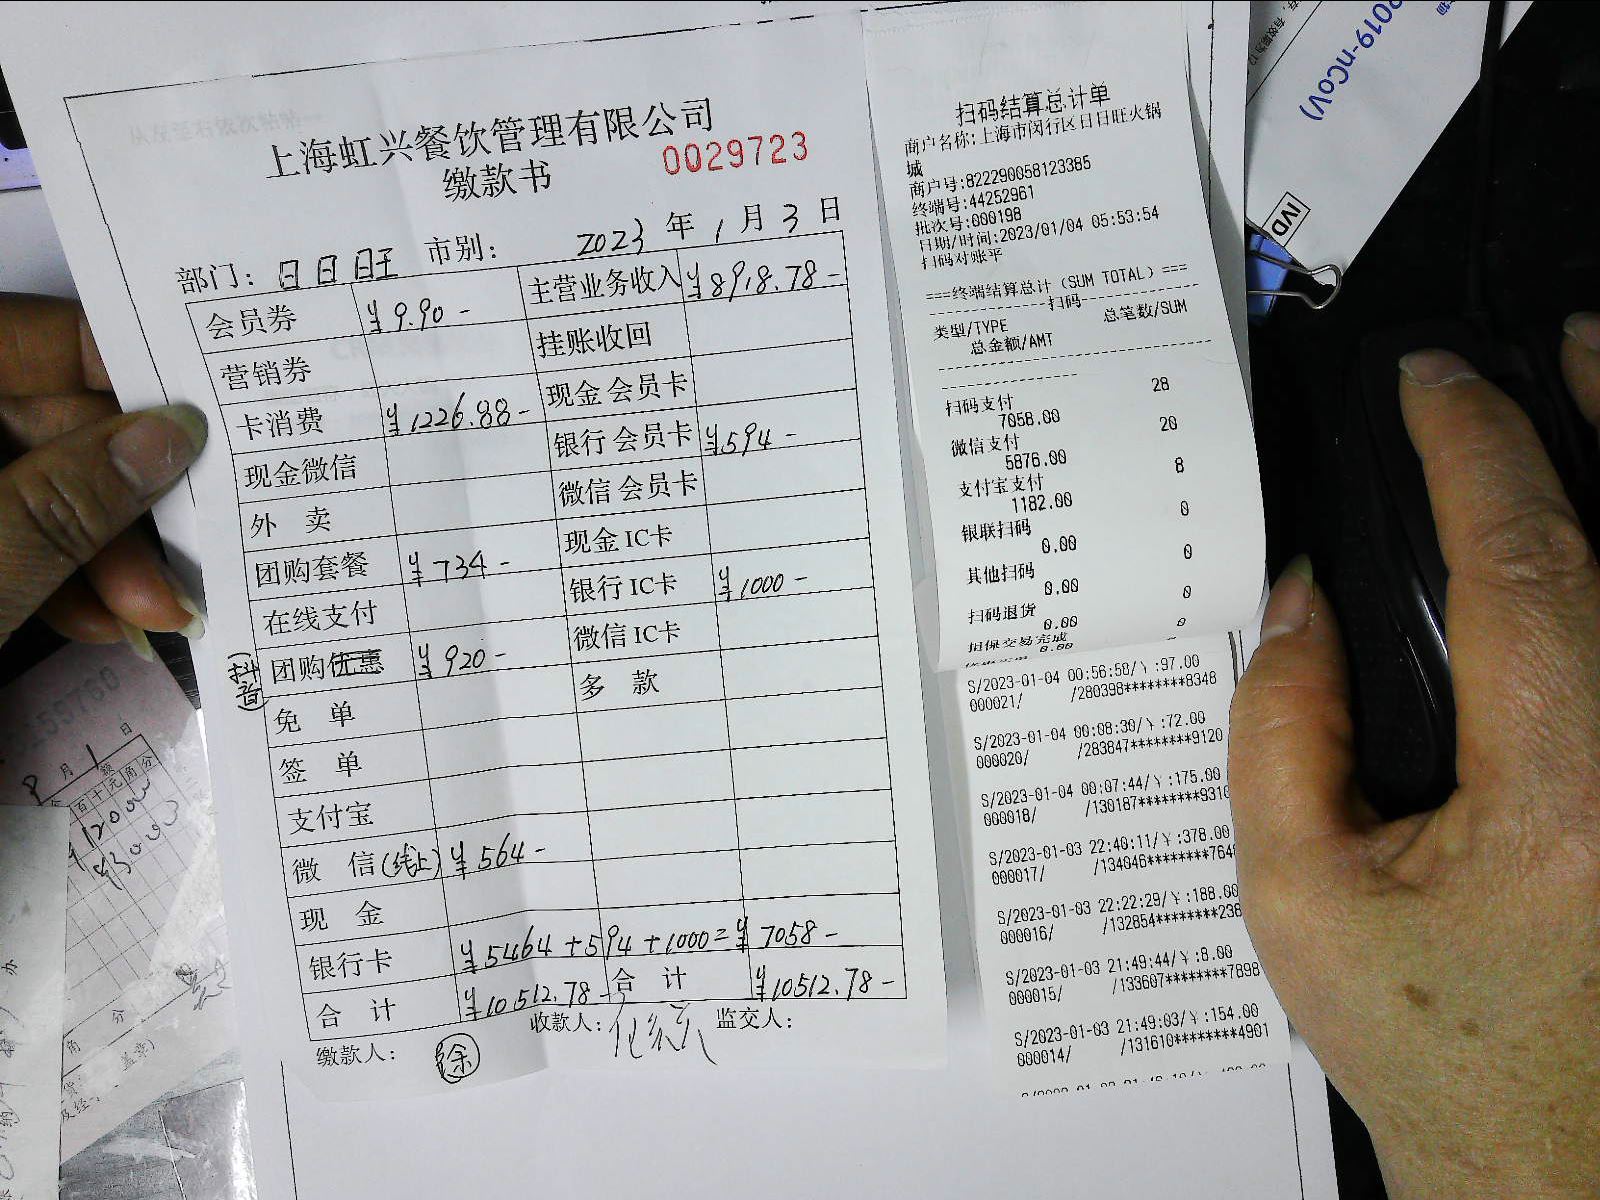 上海虹兴餐饮管理有限公司
缴款书
0029723
部门: 日日旺 市别: 2023 年 1 月 3 日
会员券 ¥9.90- 主营业务收入 ¥8918.78-
营销券 挂账收回
卡消费 ¥1226.88- 现金会员卡
现金微信 银行会员卡 ¥594-
外 卖 微信会员卡
团购套餐 ¥734- 现金IC卡
在线支付 银行IC卡 ¥1000-
(抖音) 团购优惠 ¥920- 微信IC卡
免 单 多 款
签 单
支付宝
微 信(线上) ¥564-
现 金
银行卡 ¥5464+594+1000=¥7058-
合 计 ¥10512.78- 合 计 ¥10512.78-
缴款人: 徐 收款人: 监交人:
扫码结算总计单
商户名称:上海市闵行区日日旺火锅
城
商户号:822290058123385
终端号:44252961
批次号:000198
日期/时间:2023/01/04 05:53:54
扫码对账平
===终端结算总计(SUM TOTAL)===
扫码
类型/TYPE 总笔数/SUM
总金额/AMT
扫码支付 28
7058.00
微信支付 20
5876.00
支付宝支付 8
1182.00
银联扫码 0
0.00
其他扫码 0
0.00
扫码退货 0
0.00
担保交易完成 0
0.00
S/2023-01-04 00:56:58/¥:97.00
000021/ /280398********8348
S/2023-01-04 00:08:30/¥:72.00
000020/ /283847********9120
S/2023-01-04 00:07:44/¥:175.00
000018/ /130187********9310
S/2023-01-03 22:40:11/¥:378.00
000017/ /134046********764
S/2023-01-03 22:22:29/¥:188.00
000016/ /132854********238
S/2023-01-03 21:49:44/¥:8.00
000015/ /133607********7898
S/2023-01-03 21:49:03/¥:154.00
000014/ /131610********4901
2019-nCoV)
IVD
月 1 日
百十元角分
角 分
盖章)